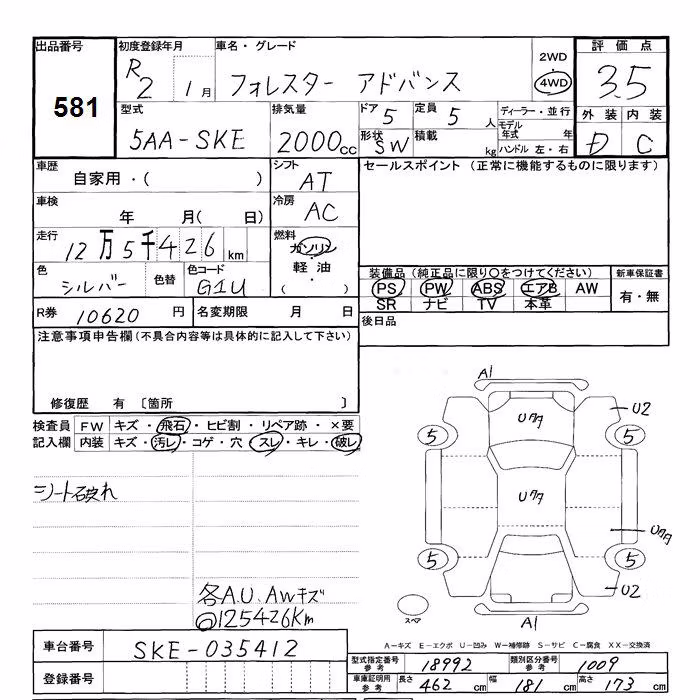 出品番号 初度登録年月 車名・グレード 2WD 評価点
581 R2 1月 フォレスター アドバンス 4WD 3.5
型式 排気量 ドア 5 定員 5 人 ディーラー・並行 外装 内装
5AA-SKE 2000cc 形状 SW 積載 kg モデル年式 年 D C
ハンドル 左・右
車歴 シフト セールスポイント (正常に機能するものに限ります)
自家用・( ) AT
車検 冷房
年 月( 日) AC
走行 燃料
12万5千426km ガソリン
・
色 シルバー 色替 色コード G1U 軽油
( )
装備品 (純正品に限り○をつけてください) 新車保証書
PS PW ABS エアB AW 有・無
SR ナビ TV 本革
R券 10620 円 名変期限 月 日 後日品
注意事項申告欄 (不具合内容等は具体的に記入して下さい)
修復歴 有 〔箇所 〕
検査員 FW キズ・飛石・ヒビ割・リペア跡・×要
記入欄 内装 キズ・汚レ・コゲ・穴・スレ・キレ・破レ
シート破れ
各A.U. AWキズ
@125426Km
A1
Uクタ U2
5 5
Uクタ
Uクタ
5 5
U2
スペア A1
A−キズ E−エクボ U−凹み W−補修跡 S−サビ C−腐食 XX−交換済
車台番号 SKE-035412
型式指定番号 参考 18992 類別区分番号 参考 1009
登録番号
車庫証明用 参考 長さ 462 cm 幅 181 cm 高さ 173 cm